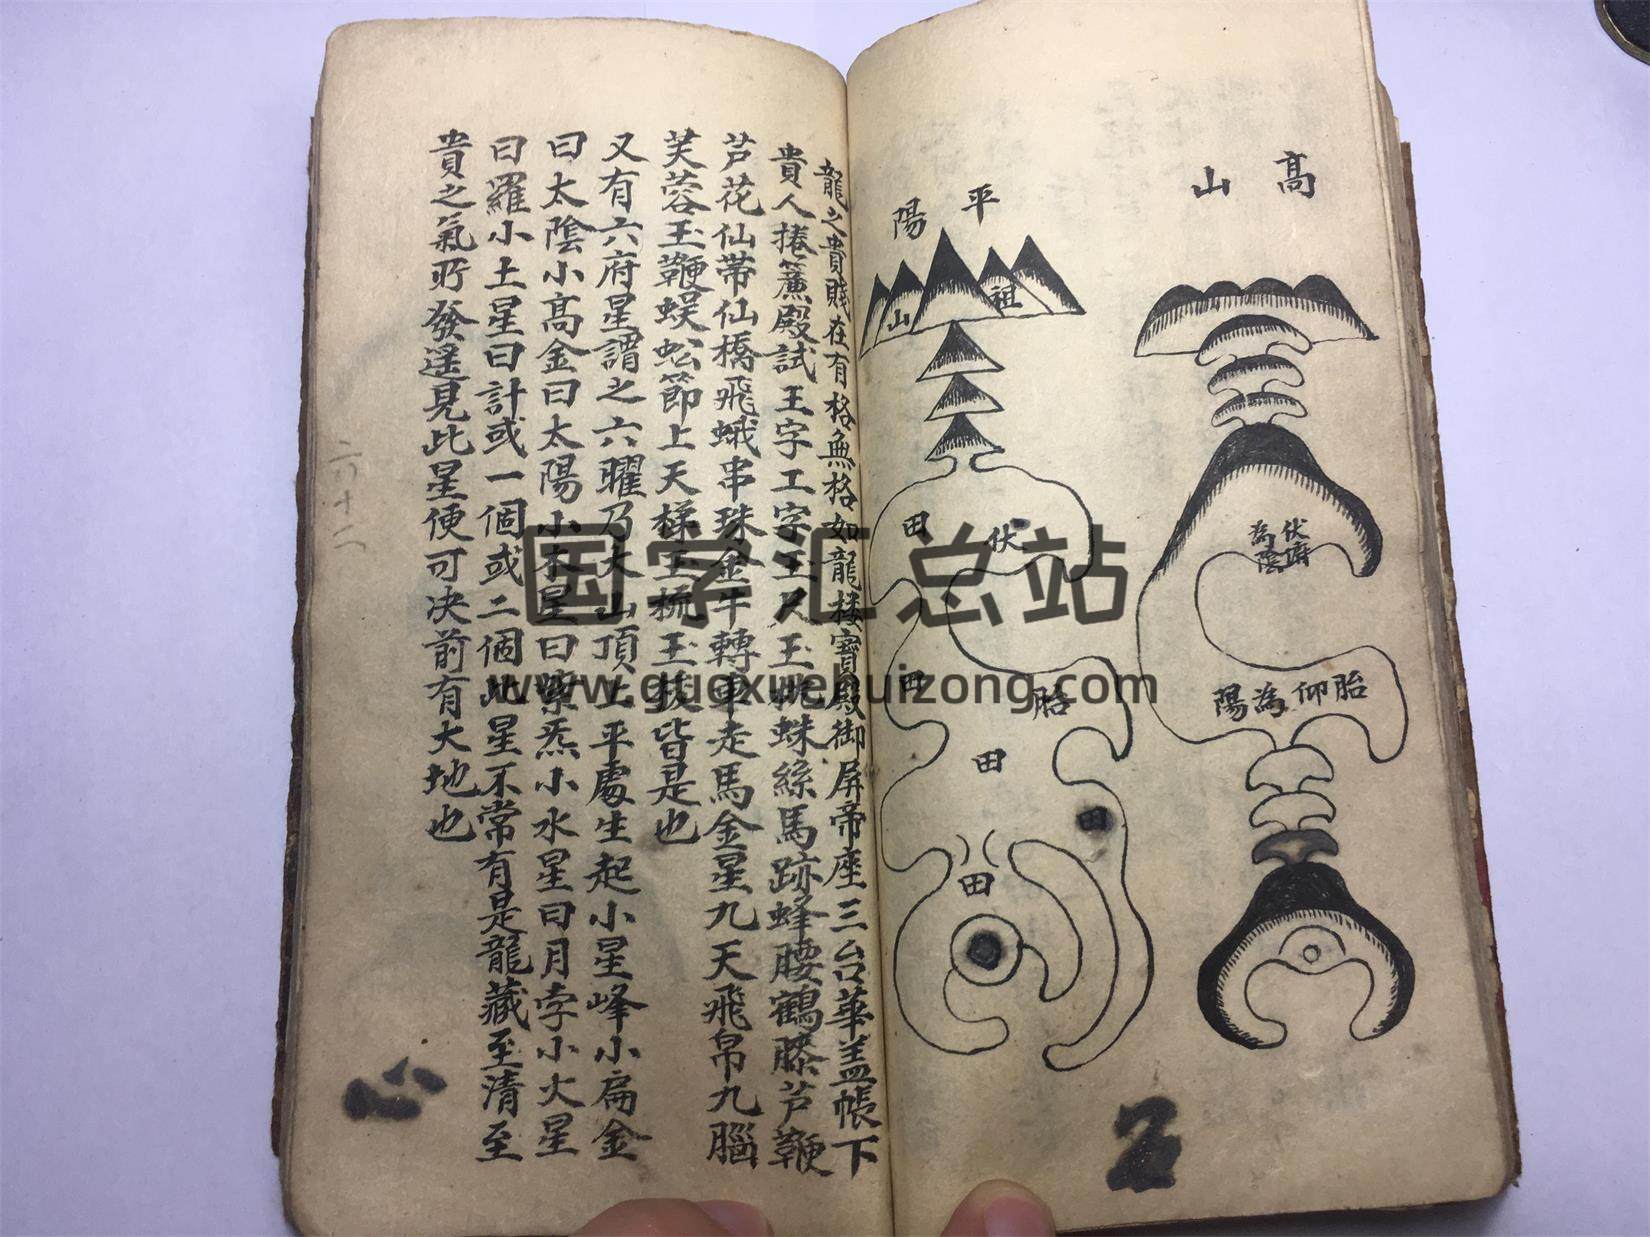 高山
平陽
祖山
伏
田
田
胎
田
田
田
伏
為陰
胎仰為陽
龍之貴賤在有格無格如龍楼寶殿御屏帝座三台華盖帳下
貴人捲簾殿試王字工字玉尺玉 蛛絲馬跡蜂腰鶴膝芦鞭
芦花仙帶仙橋飛蛾串珠金牛轉車走馬金星九天飛帛九腦
芙蓉玉鞭蜈蚣節上天梯玉梳玉 皆是也
又有六府星謂之六曜乃大山頂上平處生起小星峰小扁金
曰太陰小高金曰太陽小木星曰紫炁小水星曰月孛小火星
曰羅小土星曰計或一個或二個此星不常有是龍藏至清至
貴之氣所發遥見此星便可决前有大地也
六十二
国学汇总站
www.guoxuehuizong.com